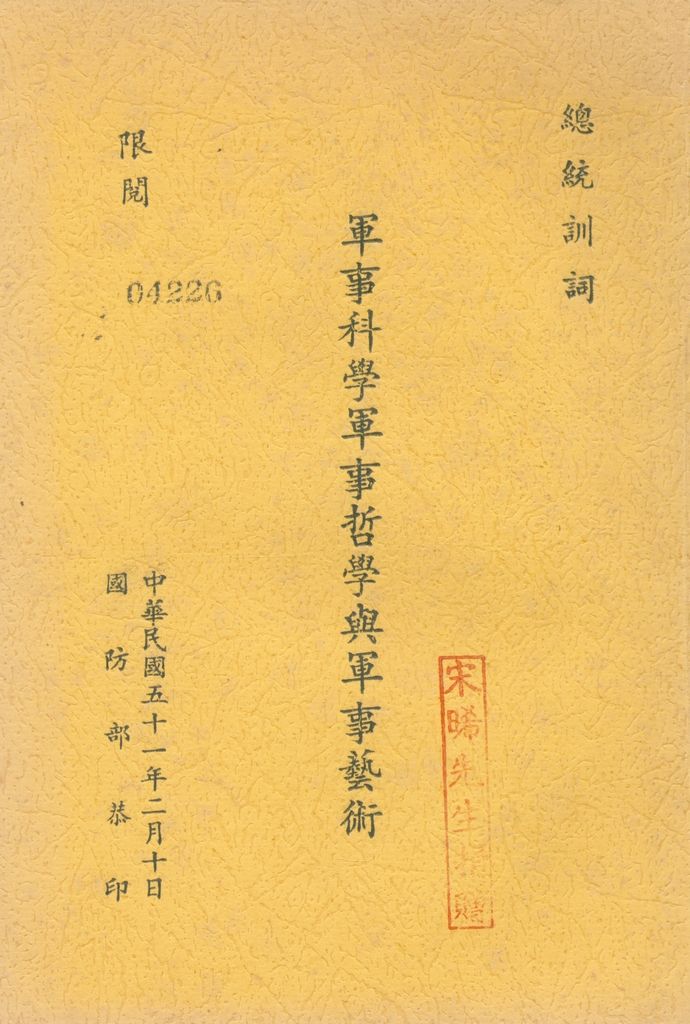 總統訓詞
軍事科學軍事哲學與軍事藝術
宋晞先生捐贈
限閱
04226
中華民國五十一年二月十日
國防部恭印